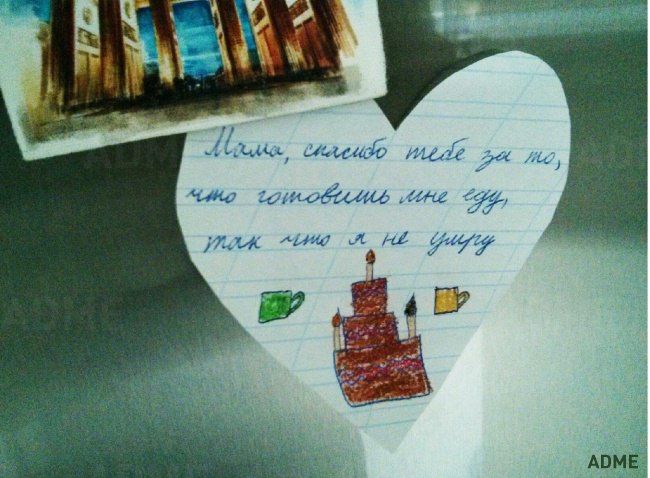 Мама, спасибо тебе за то,
что готовишь мне еду,
так что я не умру
ADME